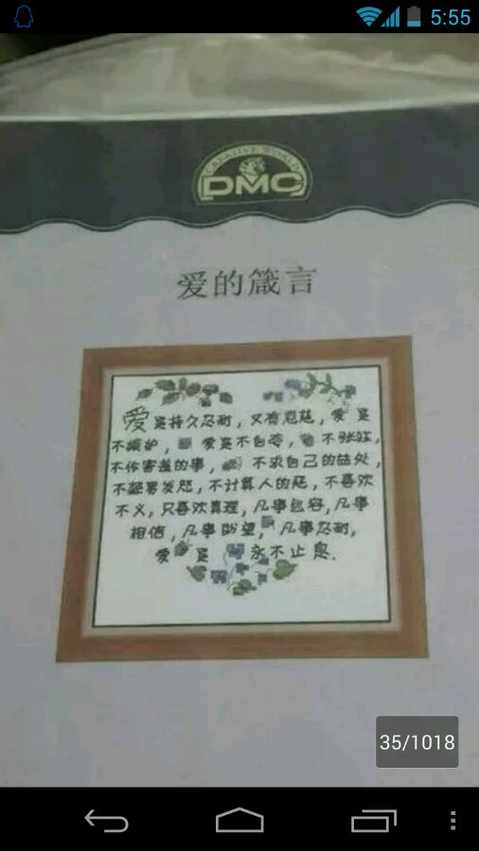 5:55
CREATIVE WORLD
DMC
爱的箴言
爱是持久忍耐，又有恩慈，爱是
不嫉妒，爱是不自夸，不张狂，
不作害羞的事，不求自己的益处，
不轻易发怒，不计算人的恶，不喜欢
不义，只喜欢真理，凡事包容，凡事
相信，凡事盼望，凡事忍耐，
爱是永不止息.
35/1018